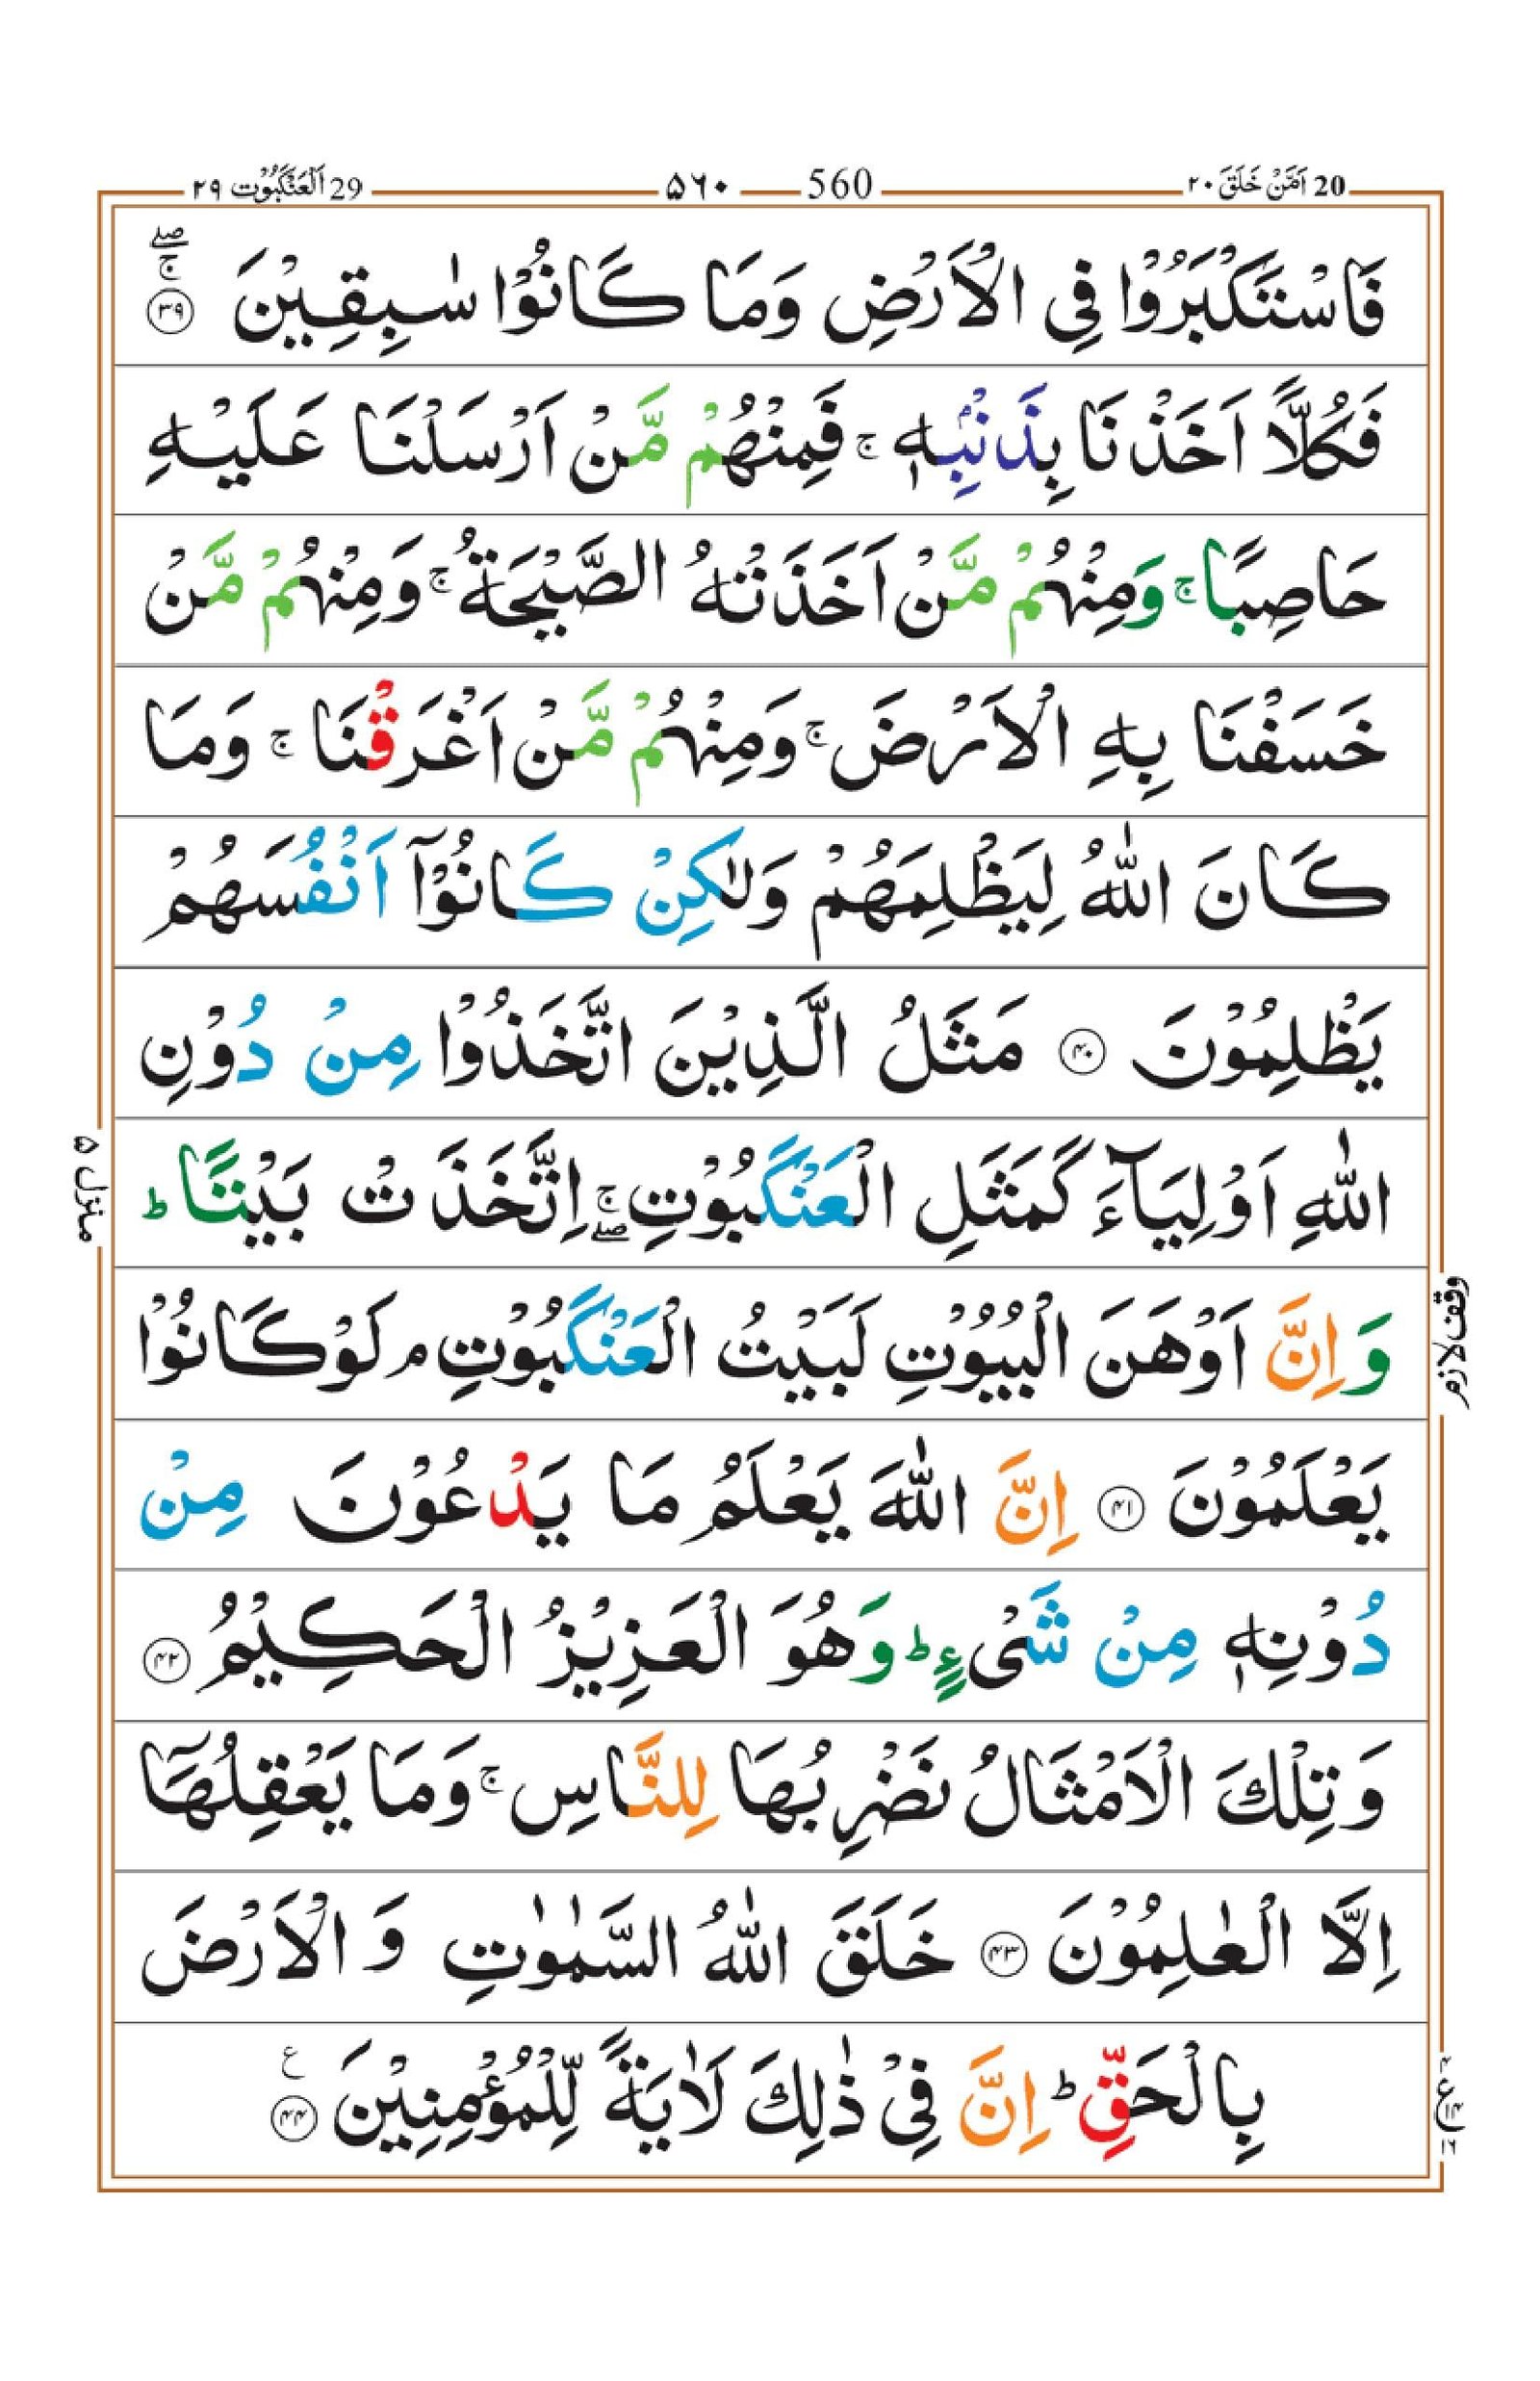 20 اَمَّنْ خَلَقَ ۲۰
560 ۵۶۰
29 اَلْعَنْكَبُوْت ۲۹
فَاسْتَكْبَرُوْا فِی الْاَرْضِ وَمَا كَانُوْا سٰبِقِیْنَ ۚۖ ﴿۳۹﴾
فَكُلًّا اَخَذْنَا بِذَنْۢبِهٖ ۚ فَمِنْهُمْ مَّنْ اَرْسَلْنَا عَلَیْهِ
حَاصِبًا ۚ وَمِنْهُمْ مَّنْ اَخَذَتْهُ الصَّیْحَةُ ۚ وَمِنْهُمْ مَّنْ
خَسَفْنَا بِهِ الْاَرْضَ ۚ وَمِنْهُمْ مَّنْ اَغْرَقْنَا ۚ وَمَا
كَانَ اللّٰهُ لِیَظْلِمَهُمْ وَلٰكِنْ كَانُوْۤا اَنْفُسَهُمْ
یَظْلِمُوْنَ ﴿۴۰﴾ مَثَلُ الَّذِیْنَ اتَّخَذُوْا مِنْ دُوْنِ
اللّٰهِ اَوْلِیَآءَ كَمَثَلِ الْعَنْكَبُوْتِ ۚۖ اِتَّخَذَتْ بَیْتًا ؕ
وَ اِنَّ اَوْهَنَ الْبُیُوْتِ لَبَیْتُ الْعَنْكَبُوْتِ ۘ لَوْ كَانُوْا
یَعْلَمُوْنَ ﴿۴۱﴾ اِنَّ اللّٰهَ یَعْلَمُ مَا یَدْعُوْنَ مِنْ
دُوْنِهٖ مِنْ شَیْءٍ ؕ وَهُوَ الْعَزِیْزُ الْحَكِیْمُ ﴿۴۲﴾
وَتِلْكَ الْاَمْثَالُ نَضْرِبُهَا لِلنَّاسِ ۚ وَمَا یَعْقِلُهَاۤ
اِلَّا الْعٰلِمُوْنَ ﴿۴۳﴾ خَلَقَ اللّٰهُ السَّمٰوٰتِ وَ الْاَرْضَ
بِالْحَقِّ ؕ اِنَّ فِیْ ذٰلِكَ لَاٰیَةً لِّلْمُؤْمِنِیْنَ ﴿۴۴﴾ ع
وقف لازم
منزل ۵
ع